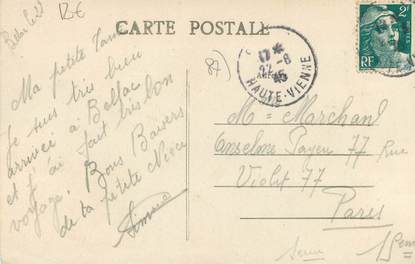 12€
CARTE POSTALE
87)
17 *
22 -8
45
HAUTE-VIENNE
2F
RF
Ma petite Tante
Je suis très bien
arrivée à Bellac
et j'ai fait très bon
voyage. Bons Baisers
de ta petite Nièce
Simone
M = Marchand
Anselme Payen 77 Rue
Violet 77
Paris